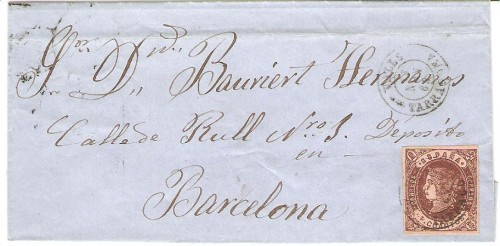 Sres. D.n Bauriert Hermanos
Calle de Rull Nro. 1. Deposito
en
Barcelona
VALLS
TARRA
ESPAÑA
4 CUARTOS